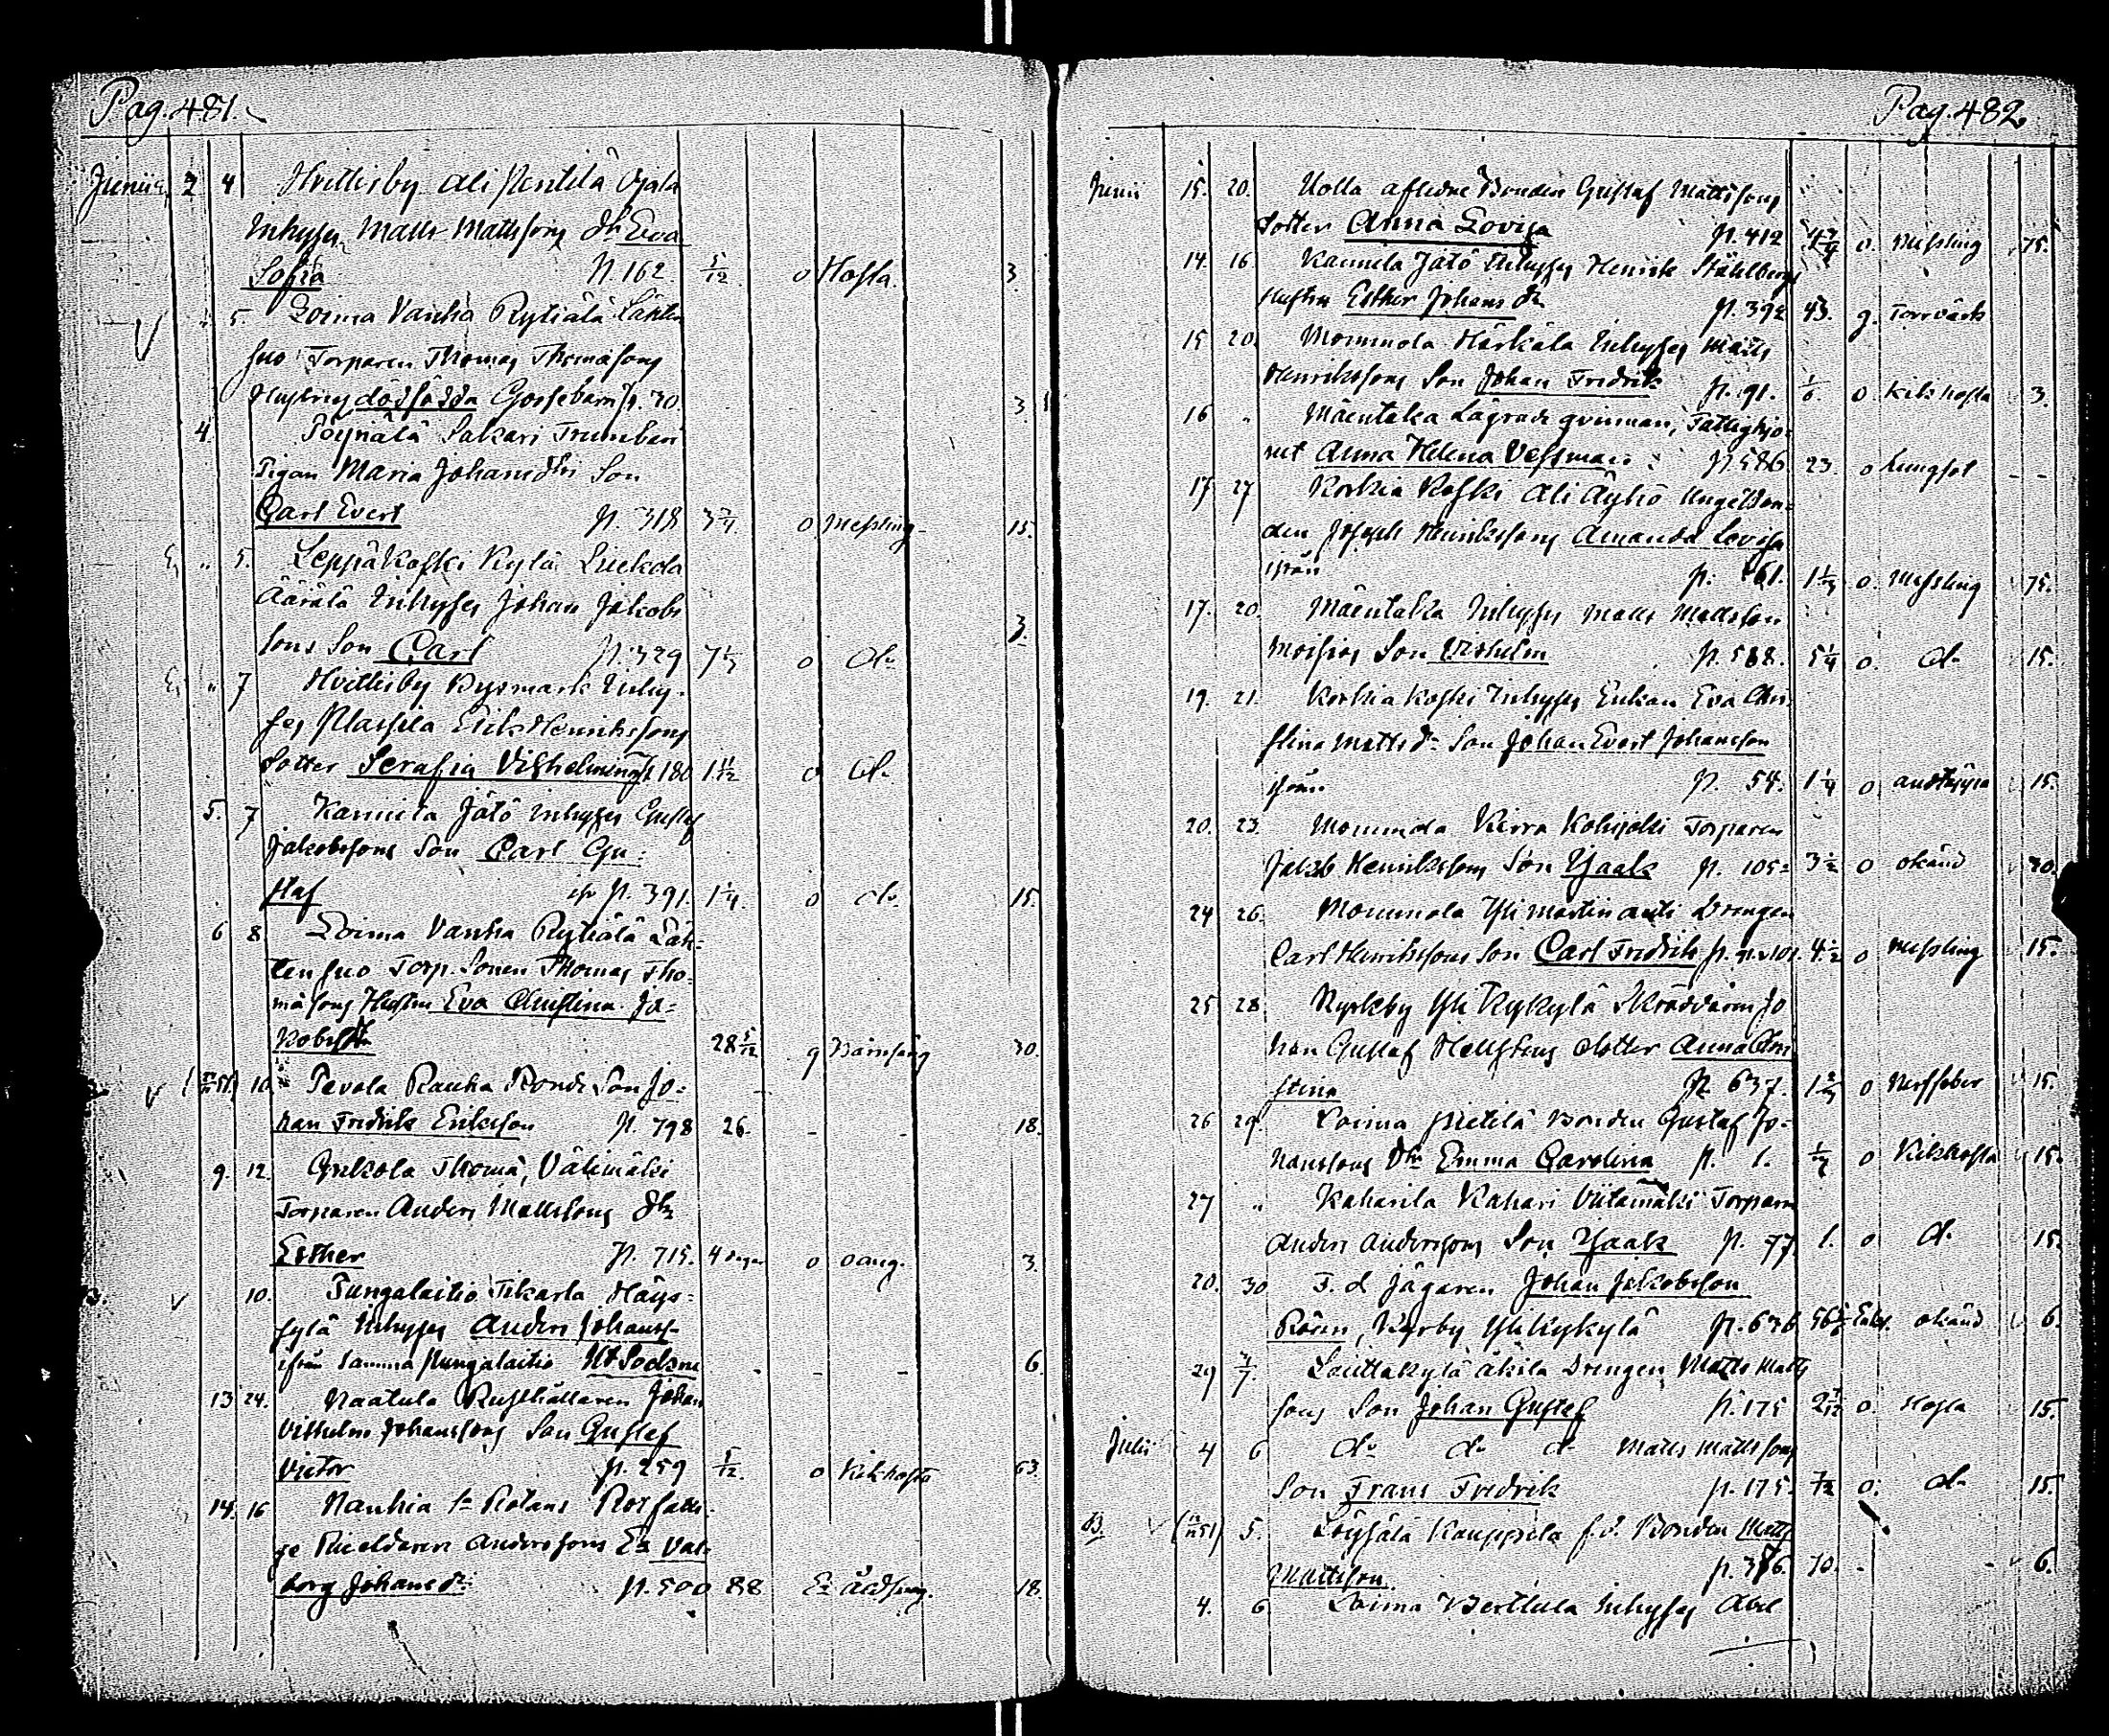 Pag. 481.
Junius 2 4 Hvittisby Ali Pentilä Ojala
Inhyses Matts Mattssons dr Eva
Sofia p. 162 5/12 o Hosta. 3.
" 5. Loima Vanha Rytiälä Lähten
suo Torparen Thomas Thomasons
Hustrus dödfödda Gossebarn p. 30. 3
4. Pöyriälä Sakari
Pigan Maria Johansdrs Son
Carl Evert p. 318 3 3/4. o Messling 15.
" 5. Leppäkoski Kylä
Äärälä Inhyses Johan Jakobs
sons Son Carl p. 329 o do 3.
" 7 Hvittisby Bysmark Inhy-
ses Erik Henrikssons
dotter Serafia Vilhelmina p. 180 1 11/12 o do
5. 7 Kannila Jätö Inhyses Gustaf
Jakobssons Son Carl Gu-
staf p. 391. 1 1/4. o do. 15.
6 8. Loima Vanha Rytiälä Läh-
ten suo Torp. Sonen Thomas Tho-
masons Hustru Eva Christina Ja-
kobsdr 28 5/12 g Barnsäng 30.
10. Pevola Rauha Bonde Son Jo-
han Fredrik Eriksson p. 798 26. - - 18.
9. 12. Thoma, Välimäki
Torparen Anders Mattssons dr
Esther p. 715. 4 dagar o oang. 3.
10. Pungalaitio Tikarla Häys-
sylä Inhyses Anders Johanss-
ifrån samma Pungalaitio Ut Socknen - - - 6.
13 24. Naatula Rusthållaren Johan
Vilhelm Johanssons Son Gustaf
Victor p. 259 5/12. o Kikhosta 63.
14. 16 Nanhia 1a Rotans
Anderssons Ea Val-
borg Johansdr p. 500 88 Ea Ålds. 18.
Pag. 482
Junii 15. 20. Uolla aflidne Bonden Gustaf Mattssons
dotter Anna Lovisa p. 412 o. Messling 75.
14. 16. Kannila Jätö Inhyses Henrik Ståhlbergs
Hustru Esther Johansdr p. 392 43. g. Torrvärk
15 20. Mommola Härkälä Inhyses Matts
Henrikssons Son Johan Fredrik p. 91. 1/6. o Kikhosta 3.
16 " Mäentaka Lägrade qvinnan, Fattighjo-
net Anna Helena Vessman p. 586 23. o Lungsot - -
17 27 Korkia Koski Ali Äyhö Unge Bon-
den Joseph Henrikssons Amanda Lovisa
ifrån p. 61. o. Messling 75.
17. 20. Mäentaka Inhyses Matts Mattsson
Son Vilhelm p. 588. 5 1/4 o. do 15.
19. 21. Korkia Koski Inhyses Enkan Eva Chri-
stina Mattsdr Son Johan Evert Johansson
ifrån p. 54. 1 1/4 o andtäppa 15.
20. 23. Mommola Kirra Kohijoki Torparen
Jakob Henrikssons Son Isaak p. 105. 3 1/2 o okänd 30.
24 26. Mommola Yli Martin antti Drengen
Carl Henrikssons Son Carl Fredrik p. 101. 4 1/2 o Messling 15.
25 28. Kyrkby Yli Kykylä Skräddaren Jo
han Gustaf Hellstens dotter Anna Chri
stina p. 637. o 15.
26 29. Loima Pietilä Bonden Gustaf Jo-
hanssons dr Emma Carolina p. 1. o Kikhosta 15.
27 " Kaharila Kahari Viitamäki Torparen
Anders Anderssons Son Isaak p. 77. 1. o do. 15.
20. 30 F. d Jägaren Johan Jakobsson
Kyrkby Yli Kykylä p. 636 okänd 6.
29 2/7. Lauttakylä Äkilä Drengen Matts Matts
sons Son Johan Gustaf p. 175 o. Hosta 15.
Julii 4 6 do do do Matts Mattssons
Son Frans Fredrik p. 175. 7/12 o. do 15.
B. 5. Löysälä Kauppila f.d. Bonden Matts
Mattsson. p. 376. 70. - - 6.
4. 6 Loima Berttula Inhyses Abel